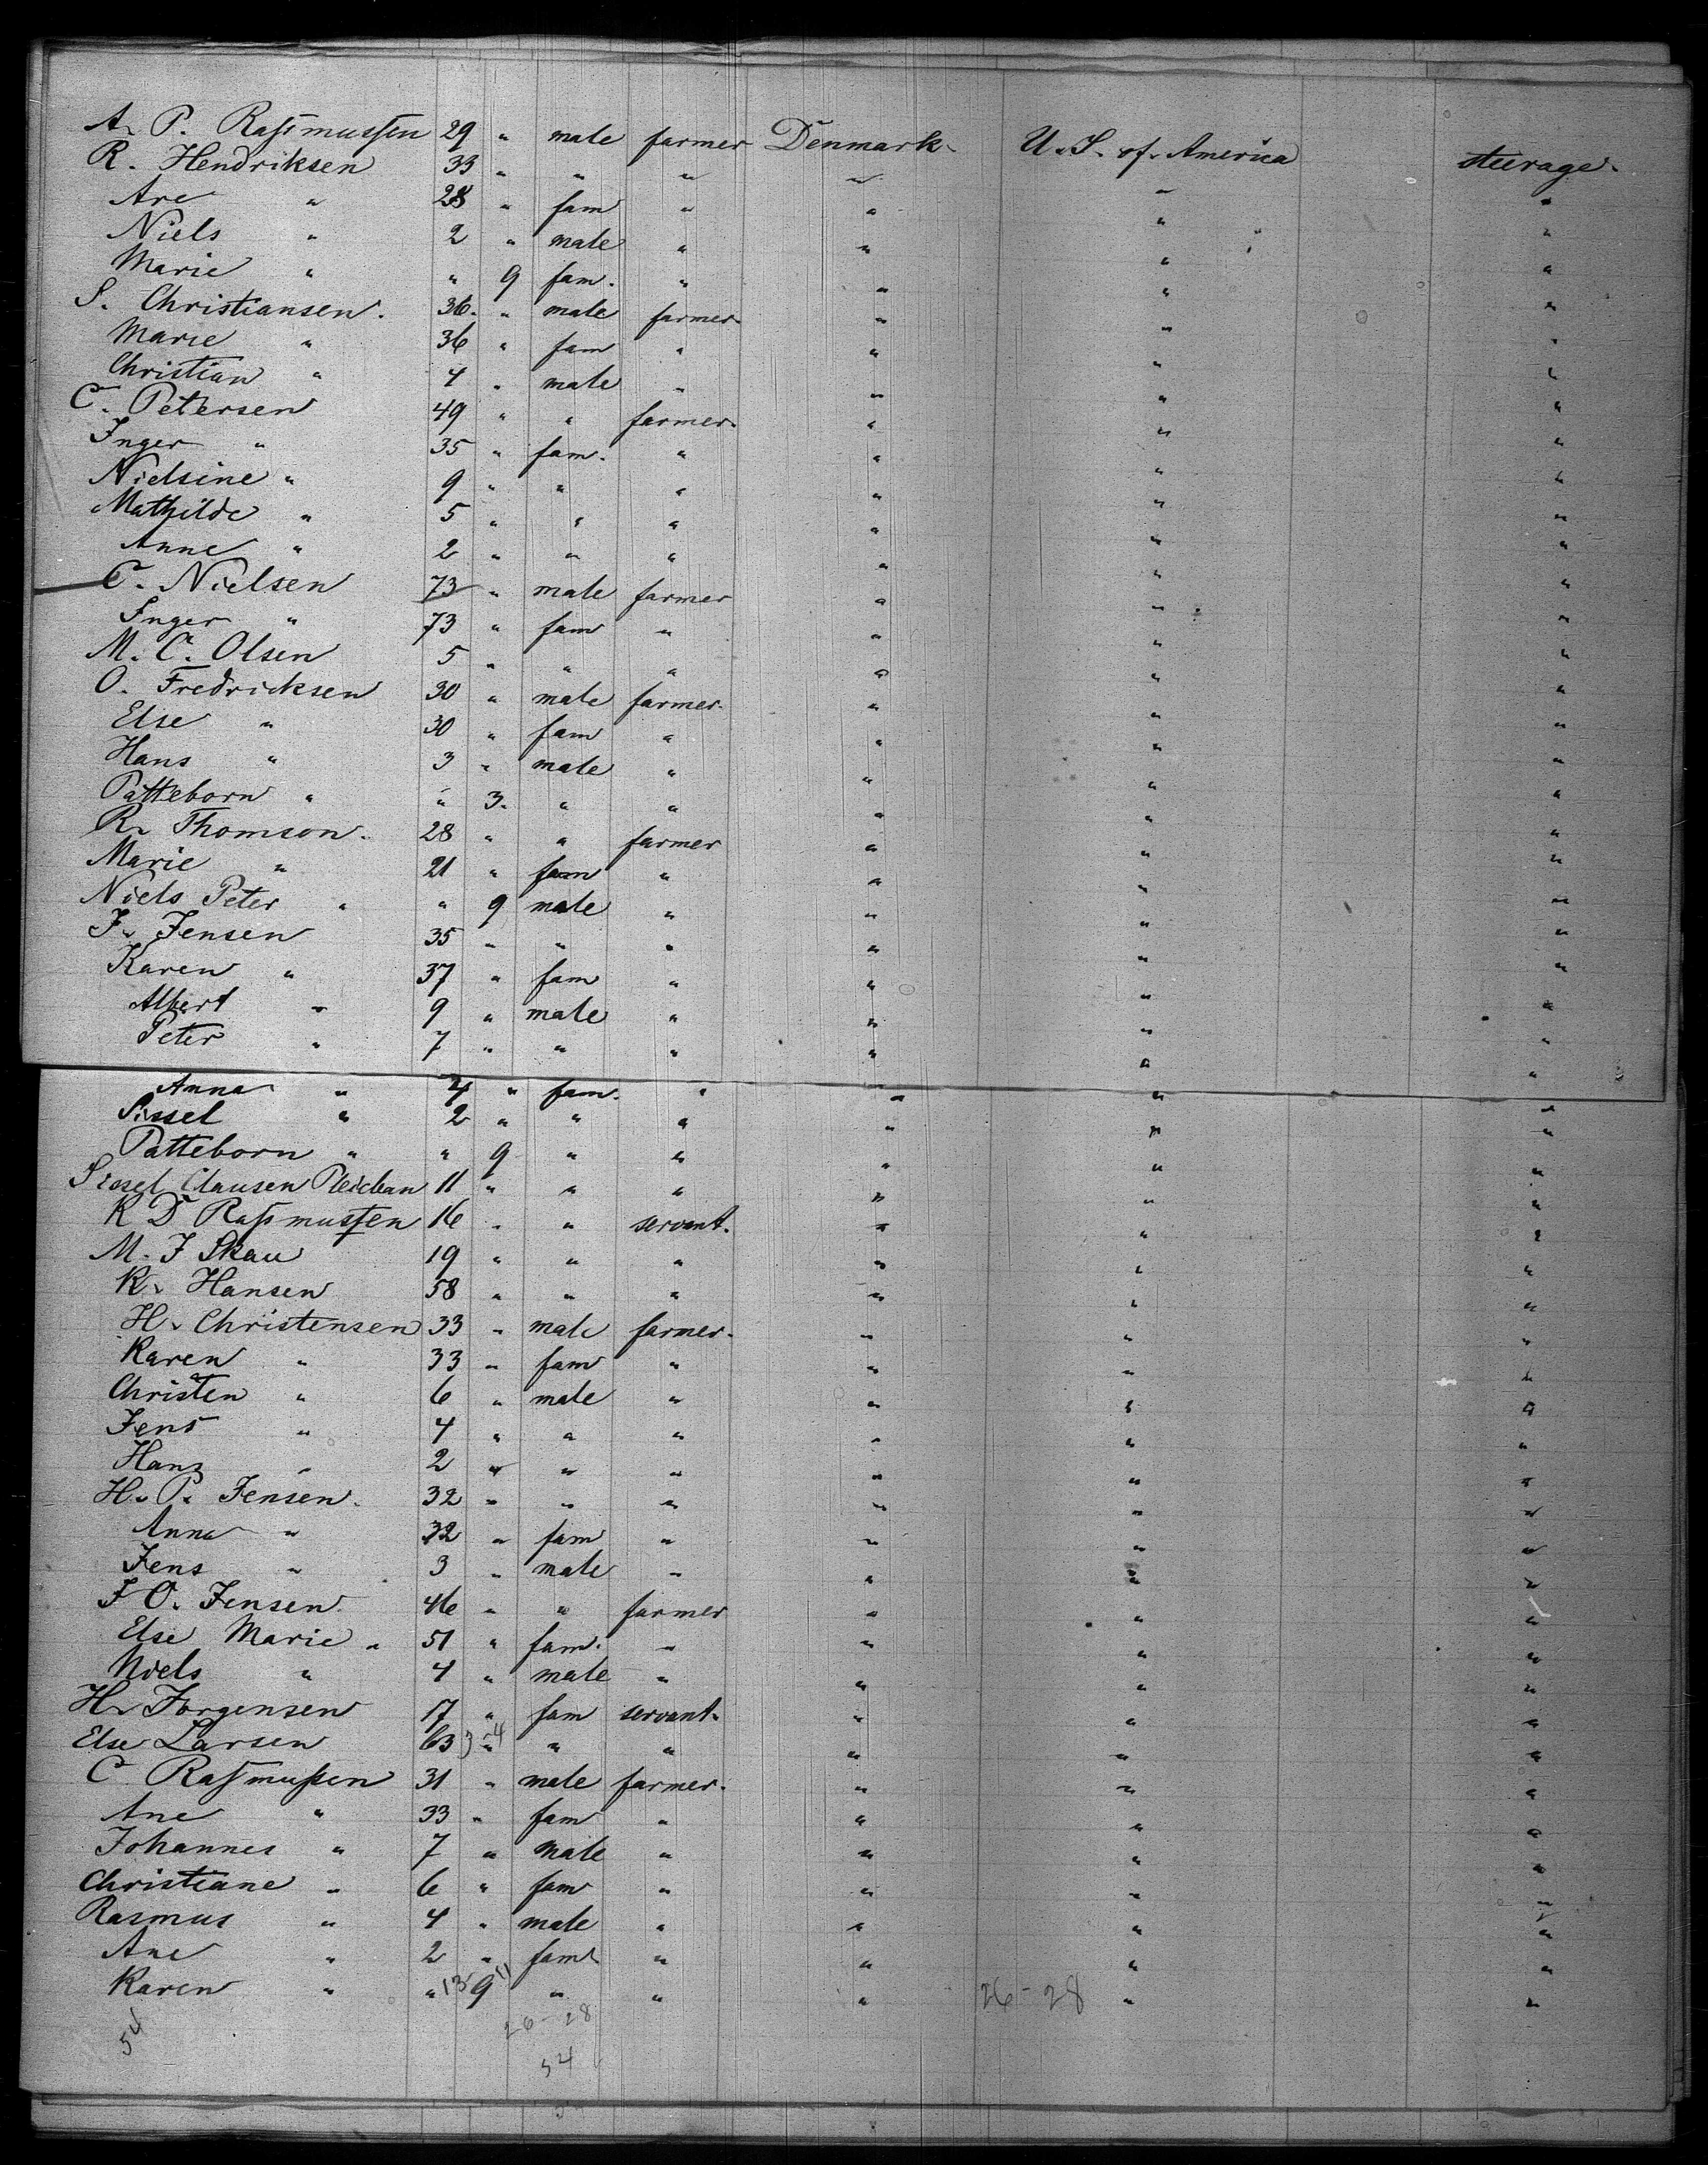 A. P. Rasmussen 29 " male farmer Denmark. U. S. of America steerage.
R. Hendriksen 33 " " " " " "
Ane " 28 " fam " " " "
Niels " 2 " male " " " "
Marie " " 9 fam. " " " "
S. Christiansen. 36. " male farmer. " " "
Marie " 36 " fam " " " "
Christian " 4 " male " " " "
C. Petersen 49 " " farmer. " " "
Inger " 35 " fam. " " " "
Nielsine " 9 " " " " " "
Mathilde " 5 " " " " " "
Anne " 2 " " " " " "
C. Nielsen 73 " male farmer " " "
Inger " 73 " fam " " " "
M. C. Olsen 5 " " " " " "
O. Fredricksen 30 " male farmer. " " "
Else " 30 " fam " " " "
Hans " 3 " male " " " "
Patteborn " " 3. " " " " "
R. Thomson. 28 " " farmer " " "
Marie " 21 " fam " " " "
Niels Peter " " 9 male " " " "
J. Jensen 35 " " " " " "
Karen " 37 " fam " " " "
Albert " 9 " male " " " "
Peter " 7 " " " " " "
Anna " 4 " fam. " " " "
Sissel " 2 " " " " " "
Patteborn " " 9 " " " " "
Sissel Clausen 11 " " " " " "
K D Rasmussen 16 " " servant. " " "
M. J Skau 19 " " " " " "
K. Hansen 58 " " " " " "
H. Christensen 33 " male farmer. " " "
Karen " 33 " fam " " " "
Christen " 6 " male " " " "
Jens " 4 " " " " " "
Hans " 2 " " " " " "
H. P. Jensen. 32 " " " " " "
Anna " 32 " fam " " " "
Jens " 3 " male " " " "
J O. Jensen 46 " " farmer " " "
Else Marie " 51 " fam. " " " "
Niels " 4 " male " " " "
H. Jorgensen 17 " fam servant. " " "
Else Larsen 63 3-4 " " " " " "
C Rasmussen 31 " male farmer. " " "
Ane " 33 " fam " " " "
Johannes " 7 " male " " " "
Christiane " 6 " fam " " " "
Rasmus " 4 " male " " " "
Ane " 2 " fam " " " "
Karen " " 13 9 11 " " " 26-28 " "
54 26-28
54